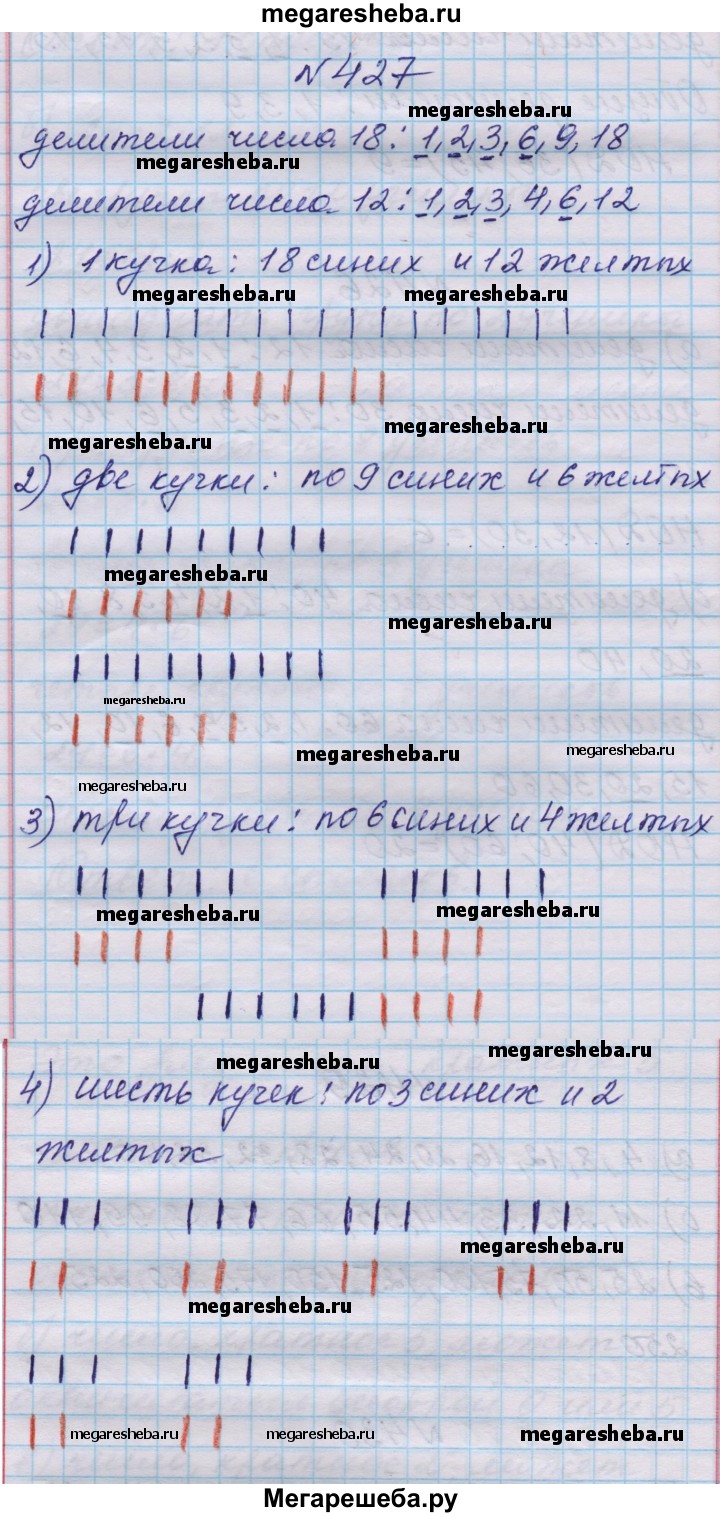 megaresheba.ru
№427
megaresheba.ru
делители числа 18: 1, 2, 3, 6, 9, 18
megaresheba.ru
делители числа 12: 1, 2, 3, 4, 6, 12
1) 1 кучка: 18 синих и 12 желтых
megaresheba.ru megaresheba.ru
megaresheba.ru
megaresheba.ru
2) две кучки: по 9 синих и 6 желтых
megaresheba.ru
megaresheba.ru
megaresheba.ru
megaresheba.ru megaresheba.ru
megaresheba.ru
3) три кучки: по 6 синих и 4 желтых
megaresheba.ru megaresheba.ru
megaresheba.ru megaresheba.ru
4) шесть кучек: по 3 синих и 2
желтых
megaresheba.ru
megaresheba.ru
megaresheba.ru megaresheba.ru megaresheba.ru
Мегарешеба.ру